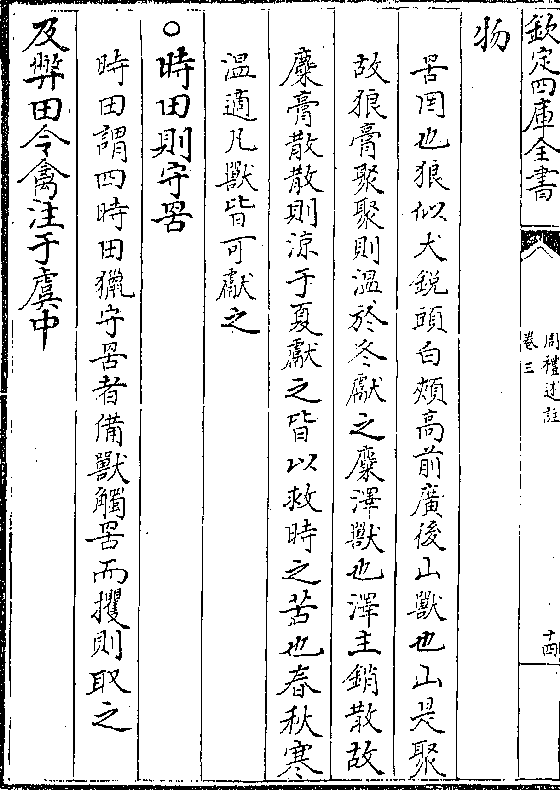 欽定四庫全書
周禮述註
卷三
十四
物
罟罔也狼似犬銳頭白頰高前廣後山獸也山是聚
故狼膏聚聚則溫於冬獻之麋澤獸也澤主銷散故
麋膏散散則涼于夏獻之皆以救時之苦也春秋寒
溫適凡獸皆可獻之
○時田則守罟
時田謂四時田獵守罟者備獸觸罟而攫則取之
及弊田令禽注于虞中